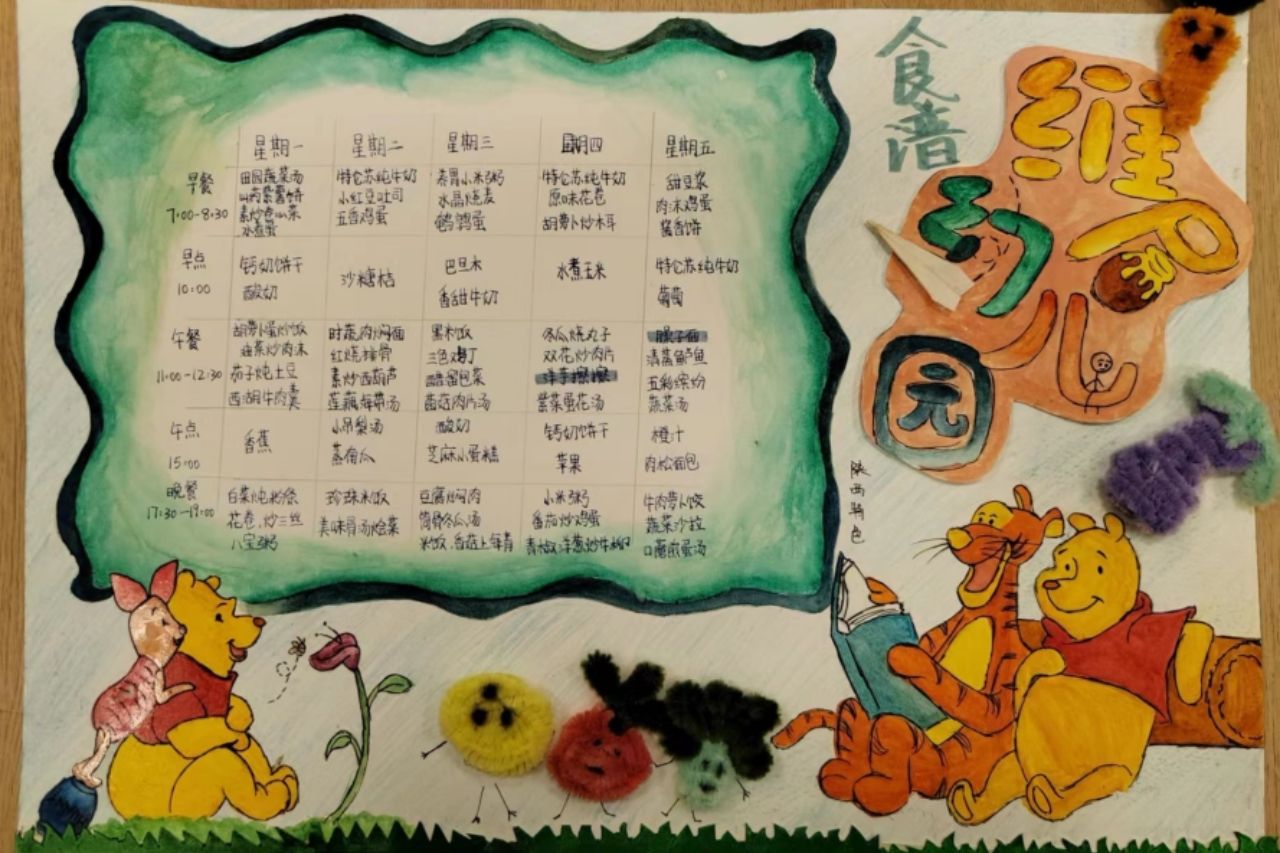 食谱
维尼
幼儿
园
陕西特色
星期一 星期二 星期三 星期四 星期五
早餐
7:00-8:30
田园蔬菜汤
山药紫薯饼
水煮蛋
特仑苏纯牛奶
小红豆吐司
五香鸡蛋
水晶烧麦
鹌鹑蛋
特仑苏纯牛奶
原味花卷
胡萝卜炒木耳
甜豆浆
肉沫鸡蛋
酱香饼
早点
10:00
钙奶饼干
酸奶
沙糖桔
巴旦木
香甜牛奶
水煮玉米
特仑苏纯牛奶
葡萄
午餐
11:00-12:30
胡萝卜蛋炒饭
油菜炒肉沫
茄子炖土豆
西湖牛肉羹
时蔬肉焖面
红烧排骨
素炒西葫芦
莲藕海带汤
黑米饭
三色鸡丁
醋溜包菜
菌菇肉片汤
冬瓜烧丸子
双花炒肉片
洋芋擦擦
紫菜蛋花汤
臊子面
清蒸鲈鱼
五彩缤纷
蔬菜汤
午点
15:00
香蕉
小吊梨汤
蒸南瓜
酸奶
芝麻小蛋糕
钙奶饼干
苹果
橙汁
肉松面包
晚餐
17:30-19:00
白菜炖粉条
花卷、炒三丝
八宝粥
珍珠米饭
美味骨汤烩菜
豆腐焖肉
筒骨冬瓜汤
米饭、香菇上海青
小米粥
番茄炒鸡蛋
青椒洋葱炒牛柳
牛肉萝卜饺
蔬菜沙拉
口蘑蛋汤